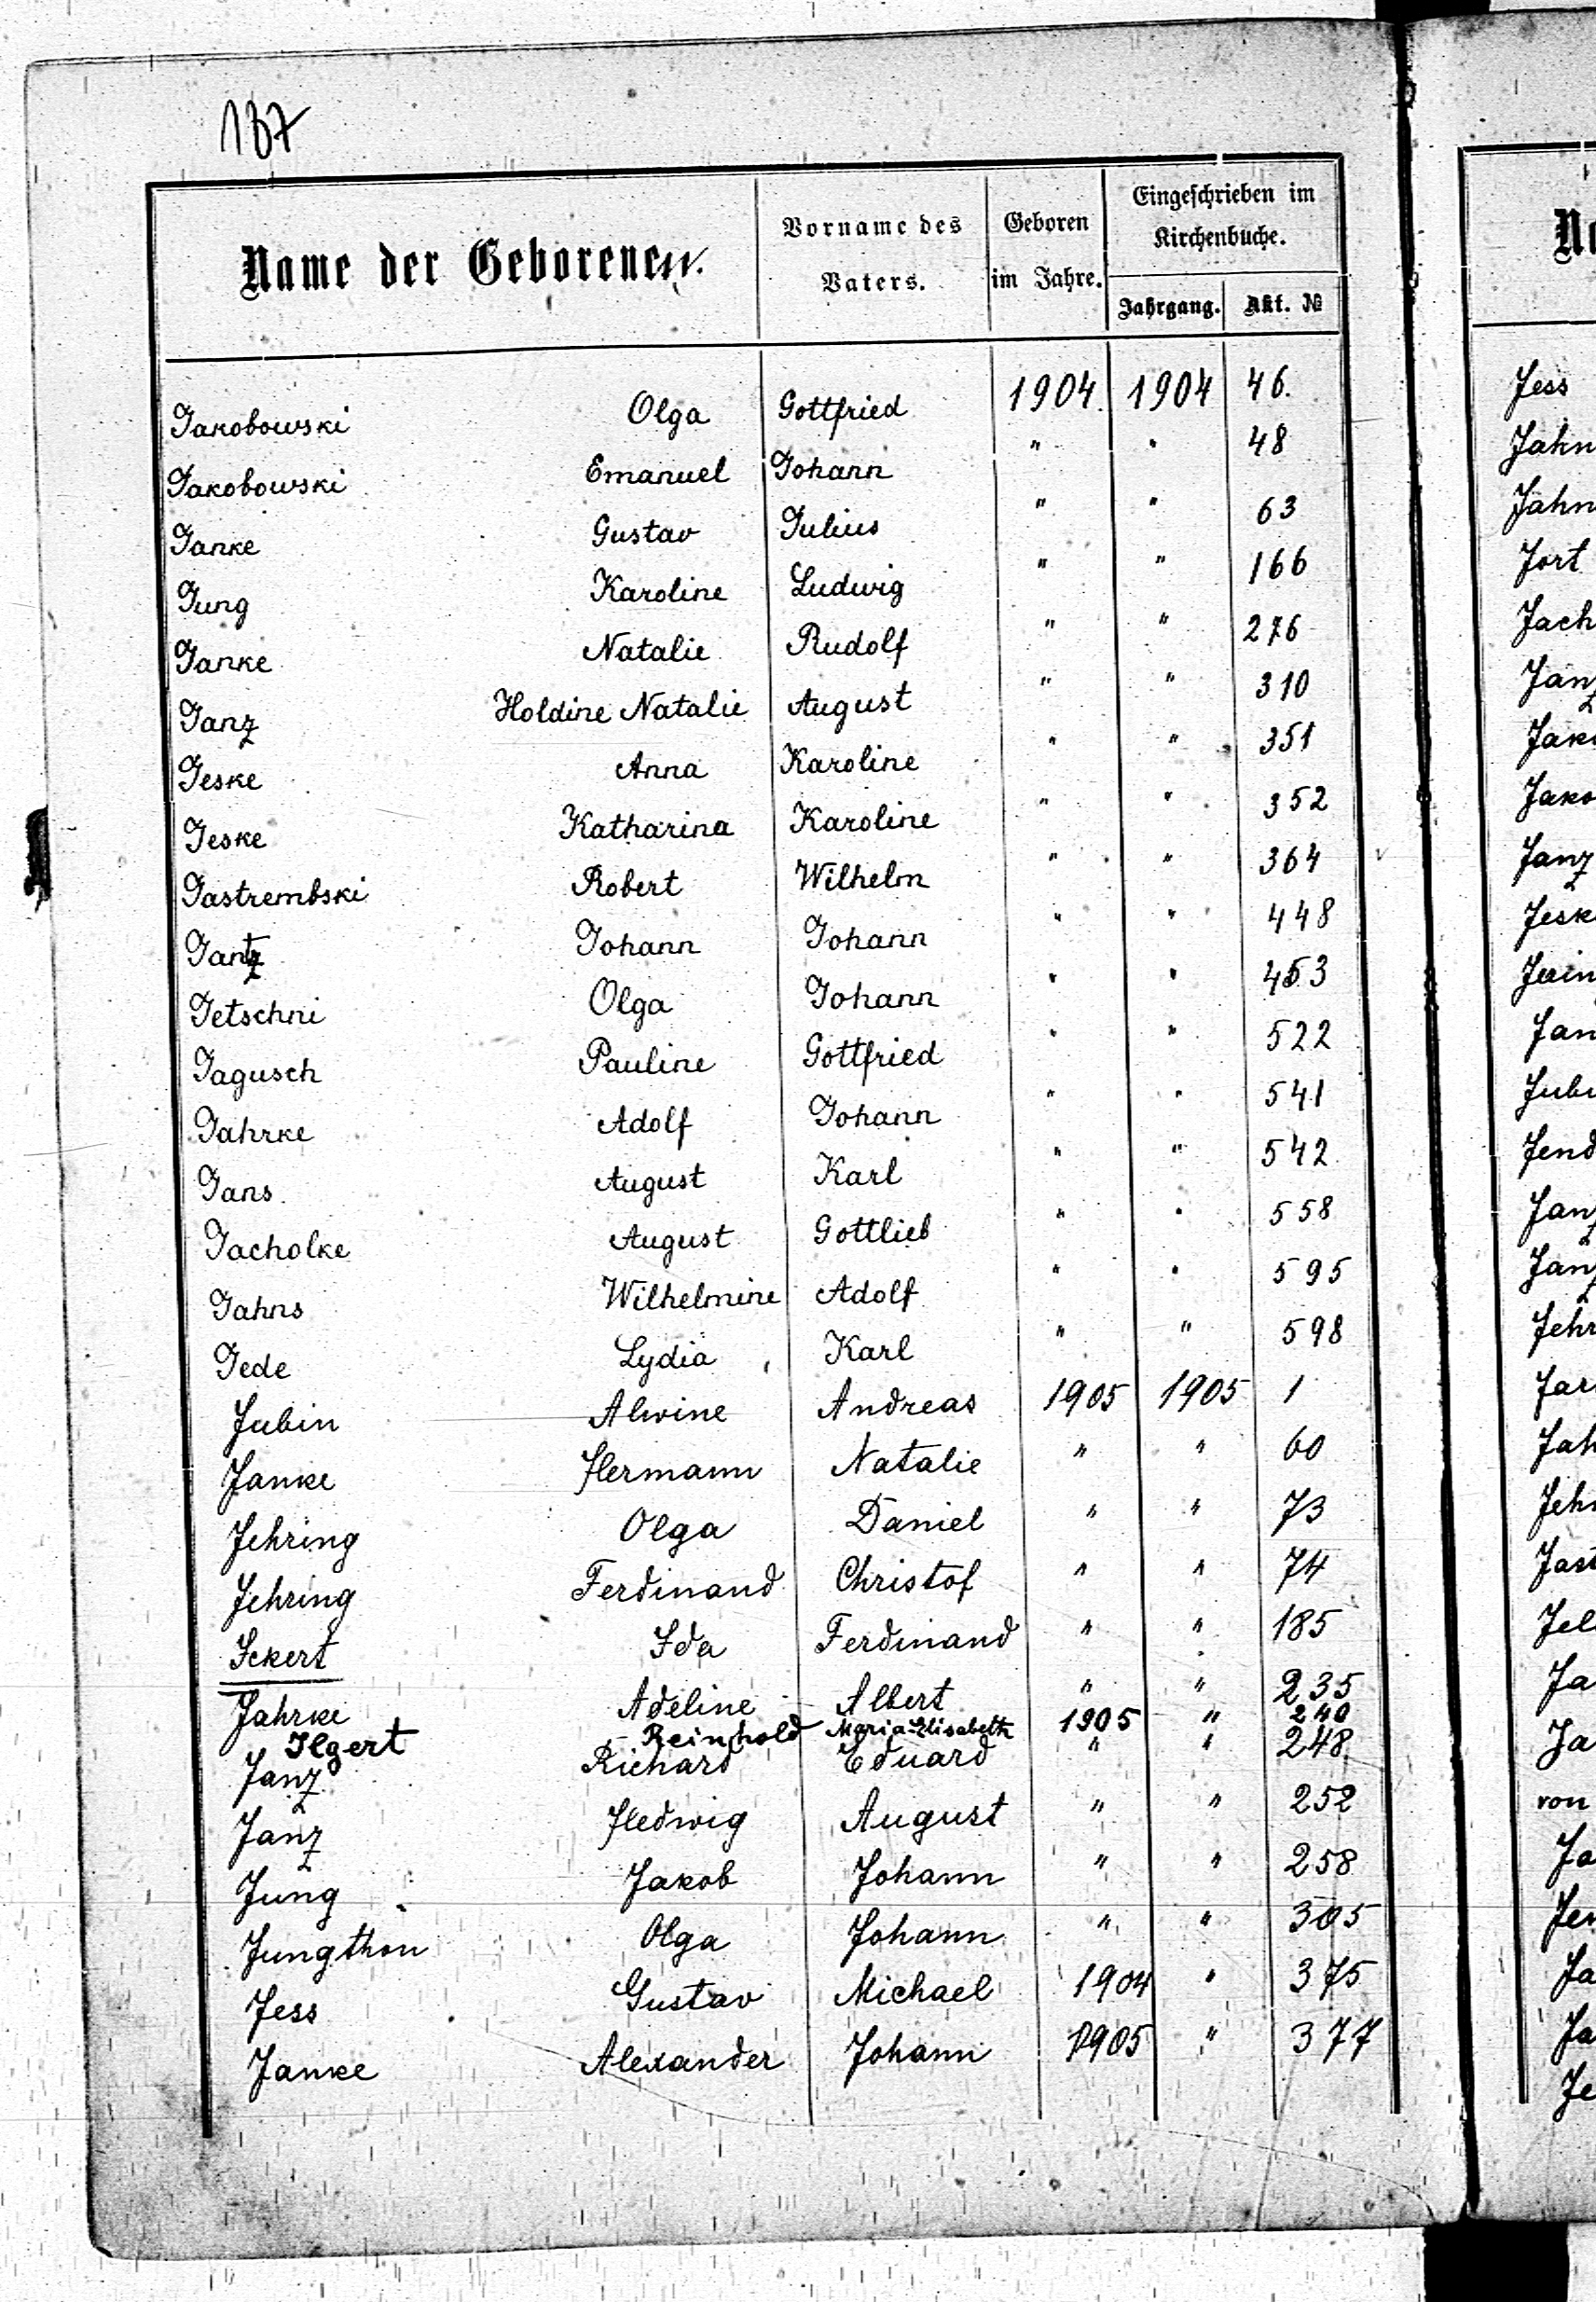 187
Name der Geborenen.
Vorname des Vaters.
Geboren im Jahre.
Eingeschrieben im Kirchenbuche.
Jahrgang. Akt. №
Jakobowski Olga Gottfried 1904. 1904 46.
Jakobowski Emanuel Johann " " 48
Janke Gustav Julius " " 63
Jung Karoline Ludwig " " 166
Janke Natalie Rudolf " " 276
Janz Holdine Natalie August " " 310
Jeske Anna Karoline " " 351
Jeske Katharina Karoline " " 352
Jastrembski Robert Wilhelm " " 364
Jantz Johann Johann " " 448
Jetschni Olga Johann " " 453
Jagusch Pauline Gottfried " " 522
Jahrke Adolf Johann " " 541
Jans August Karl " " 542
Jacholke August Gottlieb " " 558
Jahns Wilhelmine Adolf " " 595
Jede Lydia Karl " " 598
Jubin Alwine Andreas 1905 1905 1
Janke Hermann Natalie " " 60
Jehring Olga Daniel " " 73
Jehring Ferdinand Christof " " 74
Ickert Ida Ferdinand " " 185
Jahrke Adeline Albert " " 235
Ilgert Reinhold Maria-Elisabeth 1905 " 240
Janz Richard Eduard " " 248
Janz Hedwig August " " 252
Jung Jakob Johann " " 258
Jungthon Olga Johann " " 305
Jess Gustav Michael 1904 " 375
Janke Alexander Johann 1905 " 377
Jess
Jahn
Jahn
Jort
Jach
Janz
Jak
Jako
Janz
Jesk
Jan
Jubi
Jend
Janz
Janz
Jehr
Jar
Jah
Jeh
Jast
Jel
Ja
Ja
von
Ja
Jen
Ja
Ja
Je